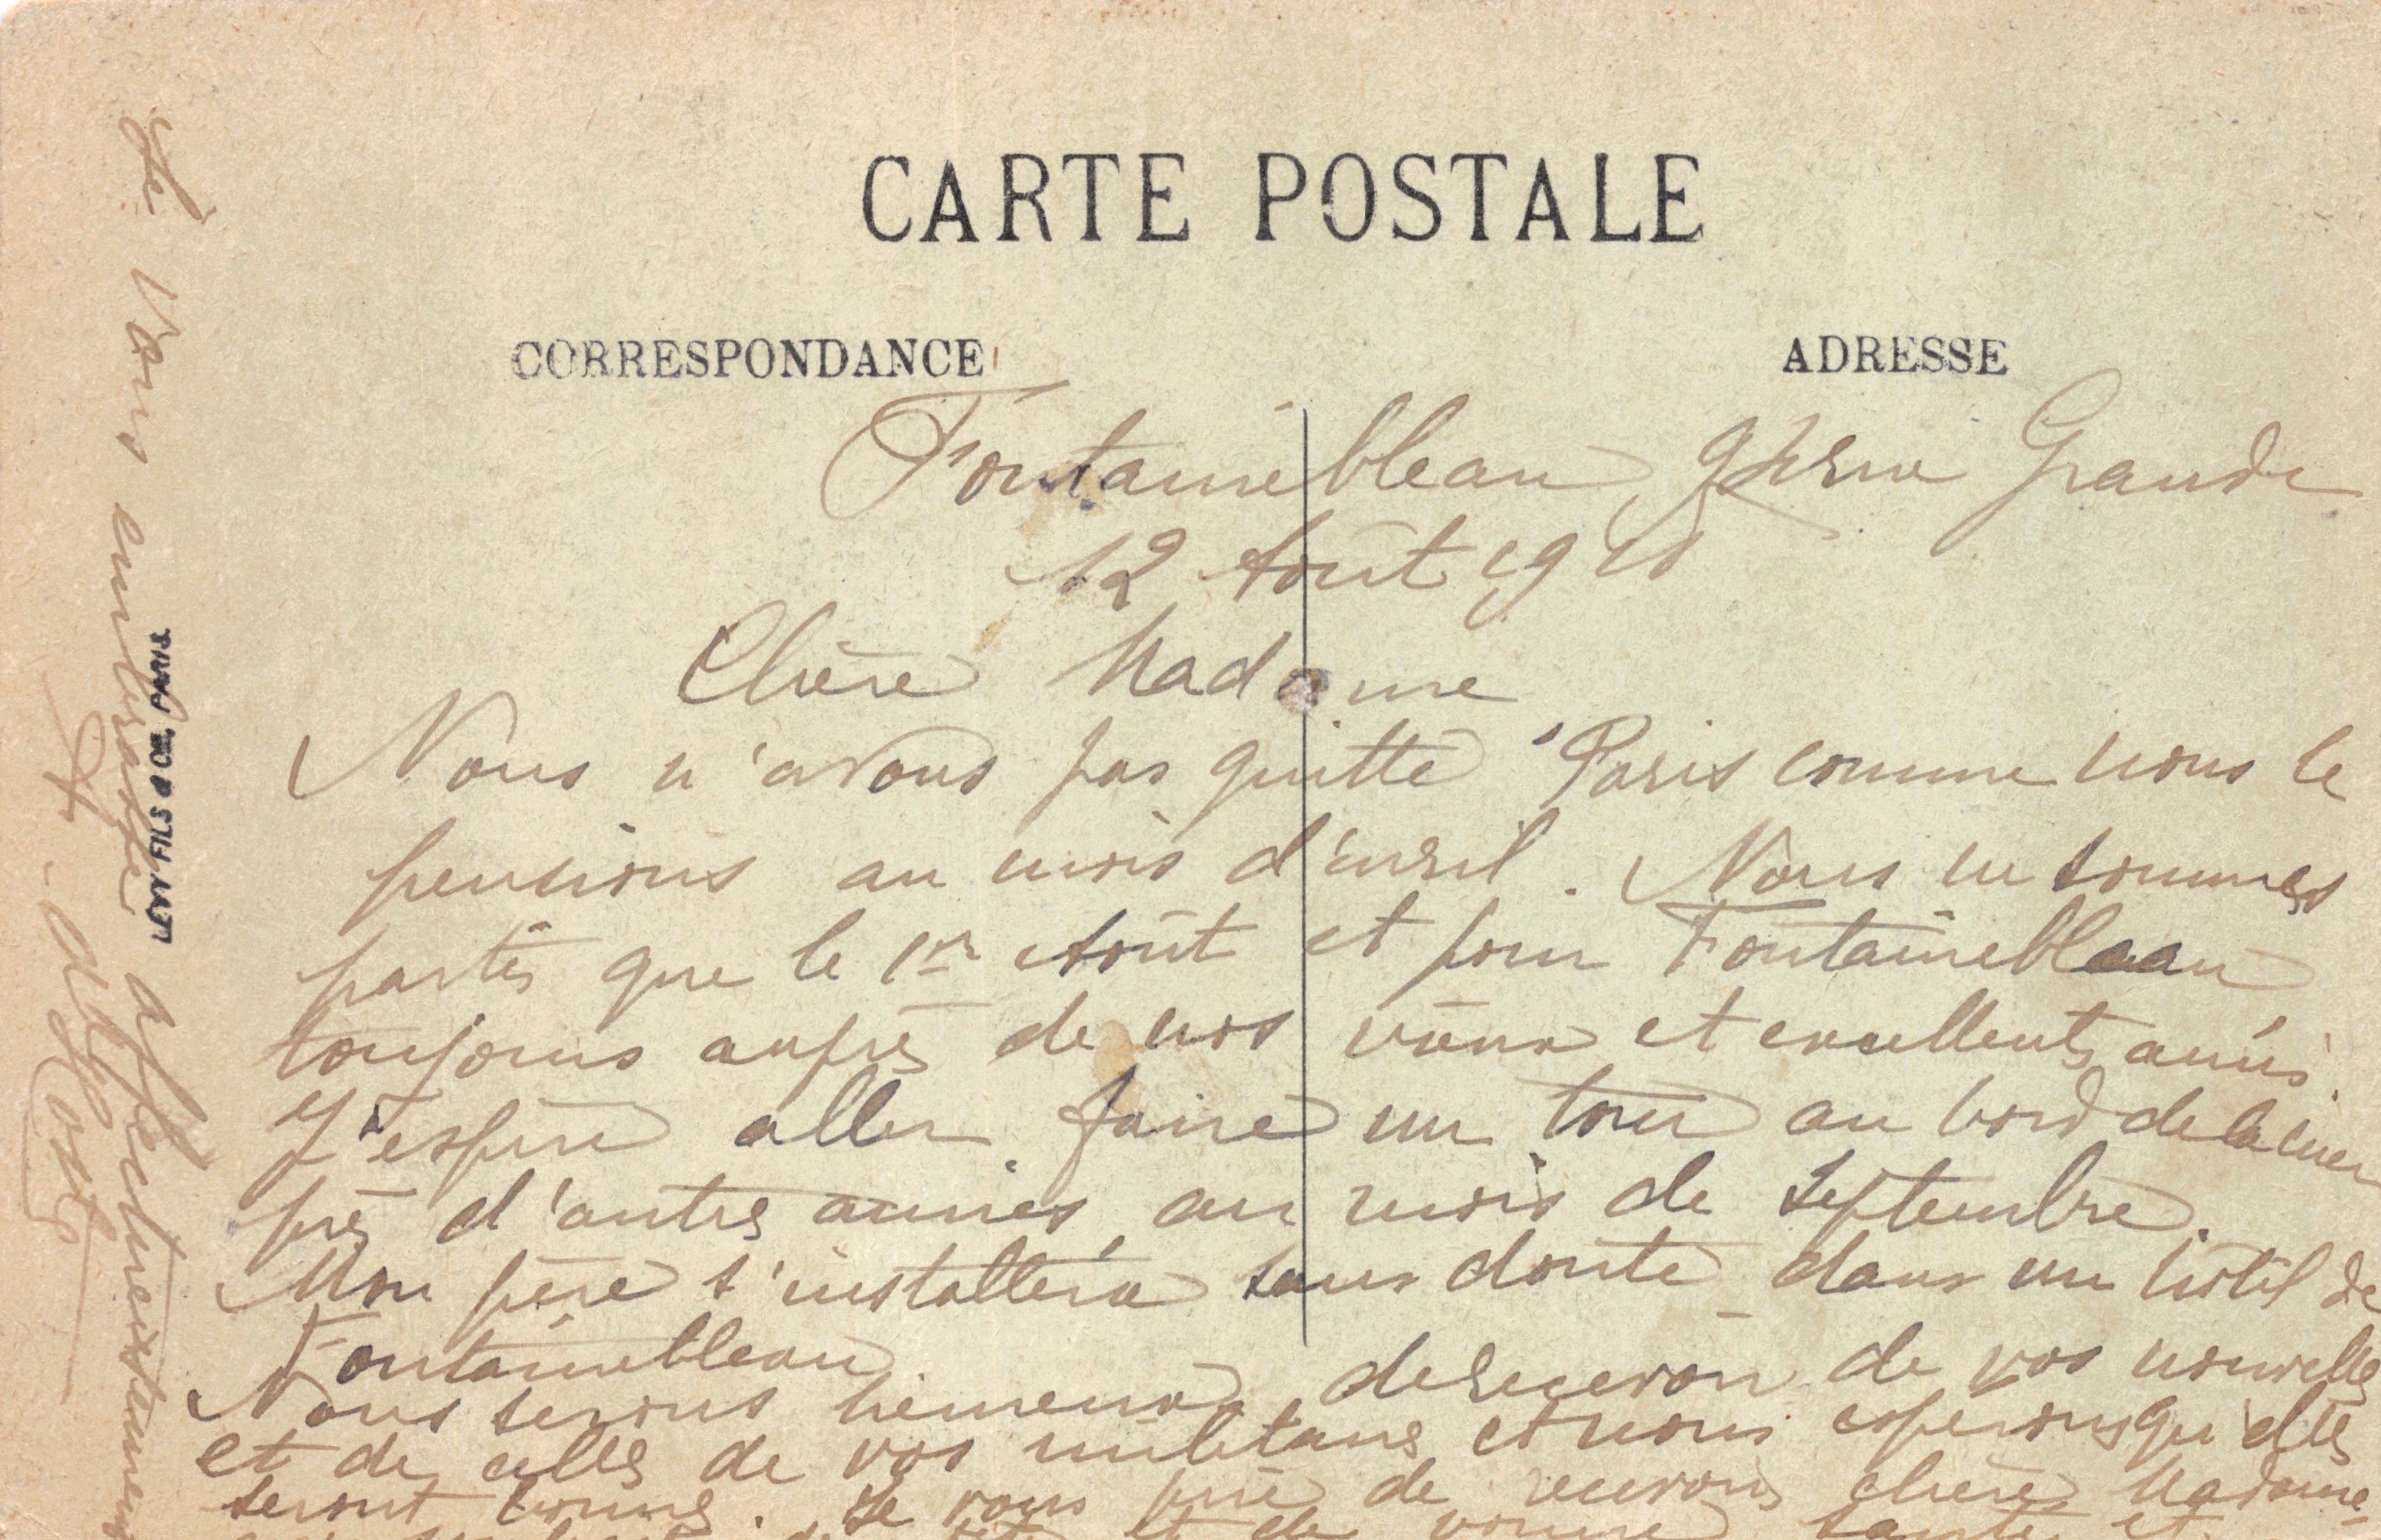 CARTE POSTALE
CORRESPONDANCE
ADRESSE
Fontainebleau, rue Grande
12 Août 19
Chère Madame
Nous n'avons pas quitté Paris comme nous le
pensions au mois d'avril. Nous ne sommes
partis que le 1er Août et pour Fontainebleau
toujours auprès de nos vieux et excellents amis.
J'espère aller faire un tour au bord de la mer
près d'autres amies, au mois de Septembre.
Mon père s'installera sans doute dans un hôtel de
Fontainebleau.
Nous serons heureux de recevoir de vos nouvelles
et de celles de vos militaires et nous espérons qu'elles
seront bonnes. Je vous prie de recevoir, chère Madame
et de bonne santé et
Je vous embrasse affectueusement
LEVY FILS & CIE, PARIS